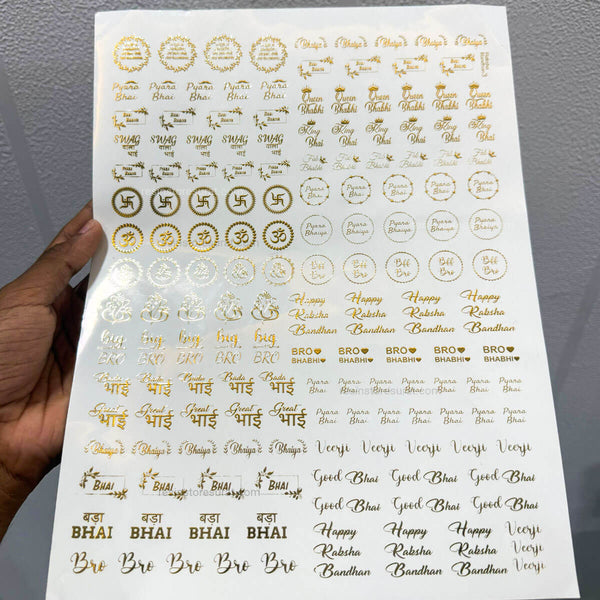 Pyara Pyara Pyara Pyara Pyara
Bhai Bhai Bhai Bhai Bhai
SWAG SWAG SWAG SWAG SWAG
वाला वाला वाला वाला वाला
भाई भाई भाई भाई भाई
ॐ ॐ ॐ ॐ ॐ
big big big big big
BRO BRO BRO BRO BRO
Bada Bada Bada Bada
भाई भाई भाई भाई
Great Great Great Great
भाई भाई भाई भाई
Bhaiya Bhaiya Bhaiya Bhaiya Bhaiya
BHAI BHAI BHAI BHAI
बड़ा बड़ा बड़ा बड़ा
BHAI BHAI BHAI BHAI
Bro Bro Bro Bro Bro
Bhaiya Bhaiya Bhaiya Bhaiya Bhaiya
Queen Queen Queen Queen Queen Queen
Bhabhi Bhabhi Bhabhi Bhabhi Bhabhi Bhabhi
King King King King King King
Bhai Bhai Bhai Bhai Bhai Bhai
Pyara Pyara Pyara Pyara Pyara
Bhai Bhai Bhai Bhai Bhai
Pyara Pyara Pyara Pyara Pyara
Bhaiya Bhaiya Bhaiya Bhaiya Bhaiya
Bff Bff Bff Bff Bff
Bro Bro Bro Bro Bro
Happy Happy Happy
Raksha Raksha Raksha
Bandhan Bandhan Bandhan
BRO BRO BRO BRO BRO
BHABHI BHABHI BHABHI BHABHI BHABHI
Pyara Pyara Pyara Pyara Pyara Pyara Pyara
Bhai Bhai Bhai Bhai Bhai Bhai Bhai
Pyara Pyara Pyara Pyara Pyara Pyara Pyara
Bhai Bhai Bhai Bhai Bhai Bhai Bhai
Veerji Veerji Veerji Veerji Veerji
Good Bhai Good Bhai Good Bhai
Good Bhai Good Bhai Good Bhai
Happy Happy Happy Veerji
Raksha Raksha Raksha Veerji
Bandhan Bandhan Bandhan Veerji